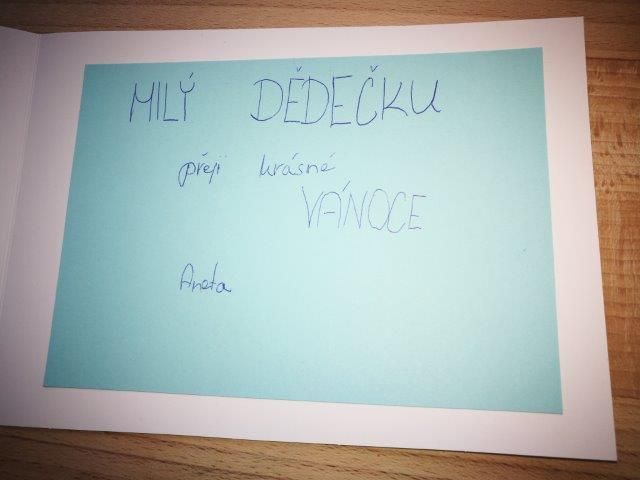 MILÝ DĚDEČKU
přeji krásné
VÁNOCE
Aneta